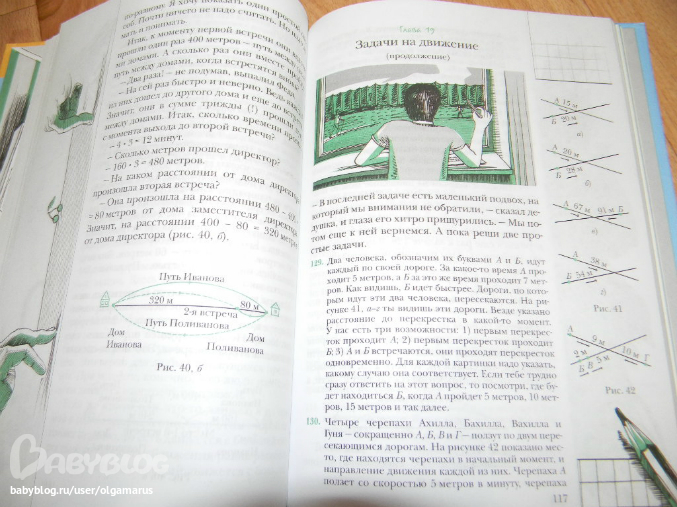 положение. Я хочу показать один простой
соб. Почти ничего не надо считать. Но
мать и понимать.
Итак, к моменту первой встречи они вместе
прошли один раз 400 метров — путь между
ми домами. А сколько раз они вместе
путь между домами, когда встретятся
— Два раза! — не подумав, выпалил
— На сей раз быстро и неверно. Ведь
из них дошел до другого дома и еще до
Значит, они в сумме трижды (!) прошли
между домами. Итак, сколько времени
с момента выхода до второй встречи?
— 4 · 3 = 12 минут.
— Сколько метров прошел директор?
— 160 · 3 = 480 метров.
— На каком расстоянии от дома
произошла вторая встреча?
— Она произошла на расстоянии 480 –
= 80 метров от дома заместителя директора.
Значит, на расстоянии 400 – 80 = 320 метров
от дома директора (рис. 40, б).
Путь Иванова
320 м
80 м
2-я встреча
Путь Поливанова
Дом
Иванова
Дом
Поливанова
Рис. 40, б
BABYBLOG
babyblog.ru/user/olgamarus
Глава 19
Задачи на движение
(продолжение)
– В последней задаче есть маленький подвох, на
который мы внимания не обратили, – сказал де-
душка, и глаза его хитро прищурились. – Мы по-
том еще к ней вернемся. А пока реши две про-
стые задачи.
129. Два человека, обозначим их буквами А и Б, идут
каждый по своей дороге. За какое-то время А про-
ходит 5 метров, а Б за это же время проходит 7 мет-
ров. Как видишь, Б идет быстрее. Дороги, по кото-
рым идут эти два человека, пересекаются. На ри-
сунке 41, а–г ты видишь эти дороги. Везде указано
расстояние до перекрестка в какой-то момент.
У нас есть три возможности: 1) первым перекрес-
ток проходит А; 2) первым перекресток проходит
Б; 3) А и Б встречаются, они проходят перекресток
одновременно. Для каждой картинки надо указать,
какому случаю она соответствует. Если тебе трудно
сразу ответить на этот вопрос, то посмотри, где бу-
дет находиться Б, когда А пройдет 5 метров, 10 мет-
ров, 15 метров и так далее.
130. Четыре черепахи Ахилла, Бахилла, Вахилла и
Гуня – сокращенно А, Б, В и Г – ползут по двум пере-
секающимся дорогам. На рисунке 42 показано мес-
то, где находятся черепахи в начальный момент, и
направление движения каждой из них. Черепаха А
ползет со скоростью 5 метров в минуту, черепаха
117
А 15 м
Б 20 м
а)
А 20 м
Б 28 м
б)
А 67 м
Б
в)
А 38 м
Б 54 м
Рис. 41
А 5 м
2 м
10 м Г
Б В 3 м
Рис. 42